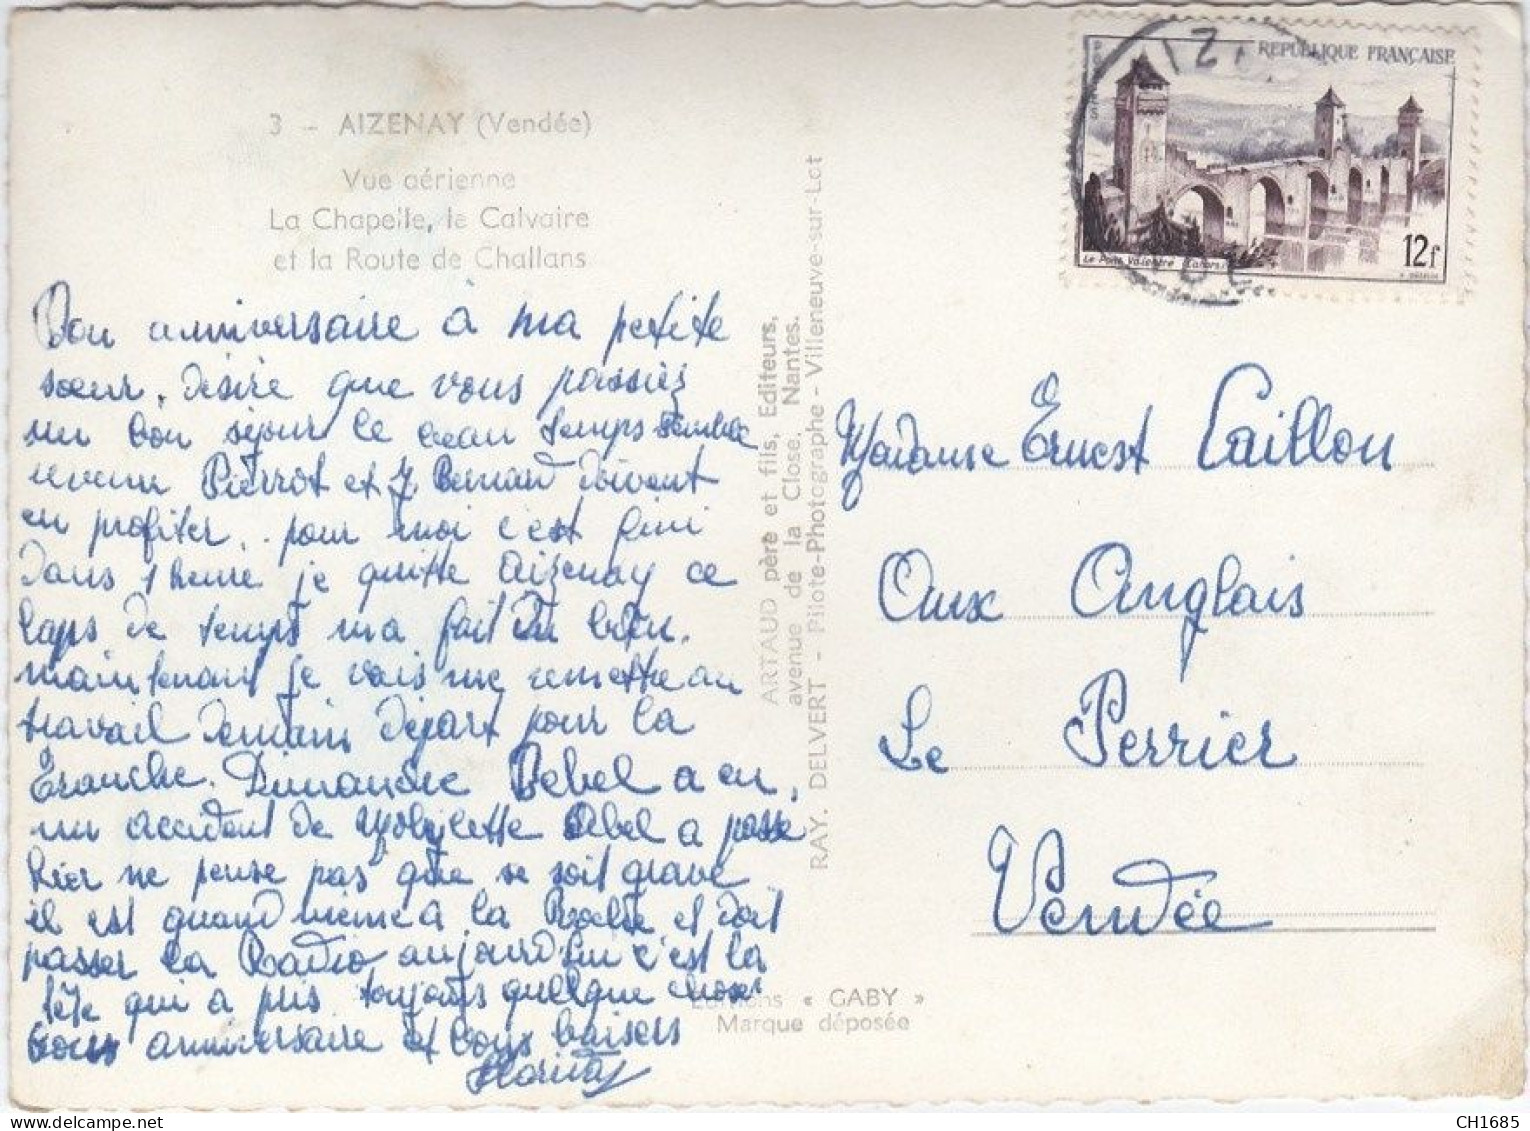 3 - AIZENAY (Vendée)
Vue aérienne
La Chapelle, le Calvaire
et la Route de Challans
Bon anniversaire à ma petite
sœur. Désire que vous passiez
un bon séjour le beau temps semble
revenir Pierrot et J. Bernard doivent
en profiter.. pour moi c'est fini
Dans 1 heure je quitte Aizenay ce
laps de temps m'a fait du bien.
maintenant je vais me remettre au
travail Demain départ pour la
Tranche. Dimanche Bebel a eu
un accident de Mobylette Abel a passé
hier ne pense pas que ce soit grave
il est quand même à la Roche et doit
passer la Radio, aujourd'hui c'est la
tête qui a pris toujours quelque chose
bon anniversaire et bons baisers
ARTAUD père et fils, Editeurs,
avenue de la Close, Nantes.
RAY. DELVERT - Pilote-Photographe - Villeneuve-sur-Lot
Editions « GABY »
Marque déposée
REPUBLIQUE FRANÇAISE
POSTES
Le Pont Valentré (Cahors)
12f
Madame Ernest Caillon
Aux Anglais
Le Perrier
Vendée
CH1685